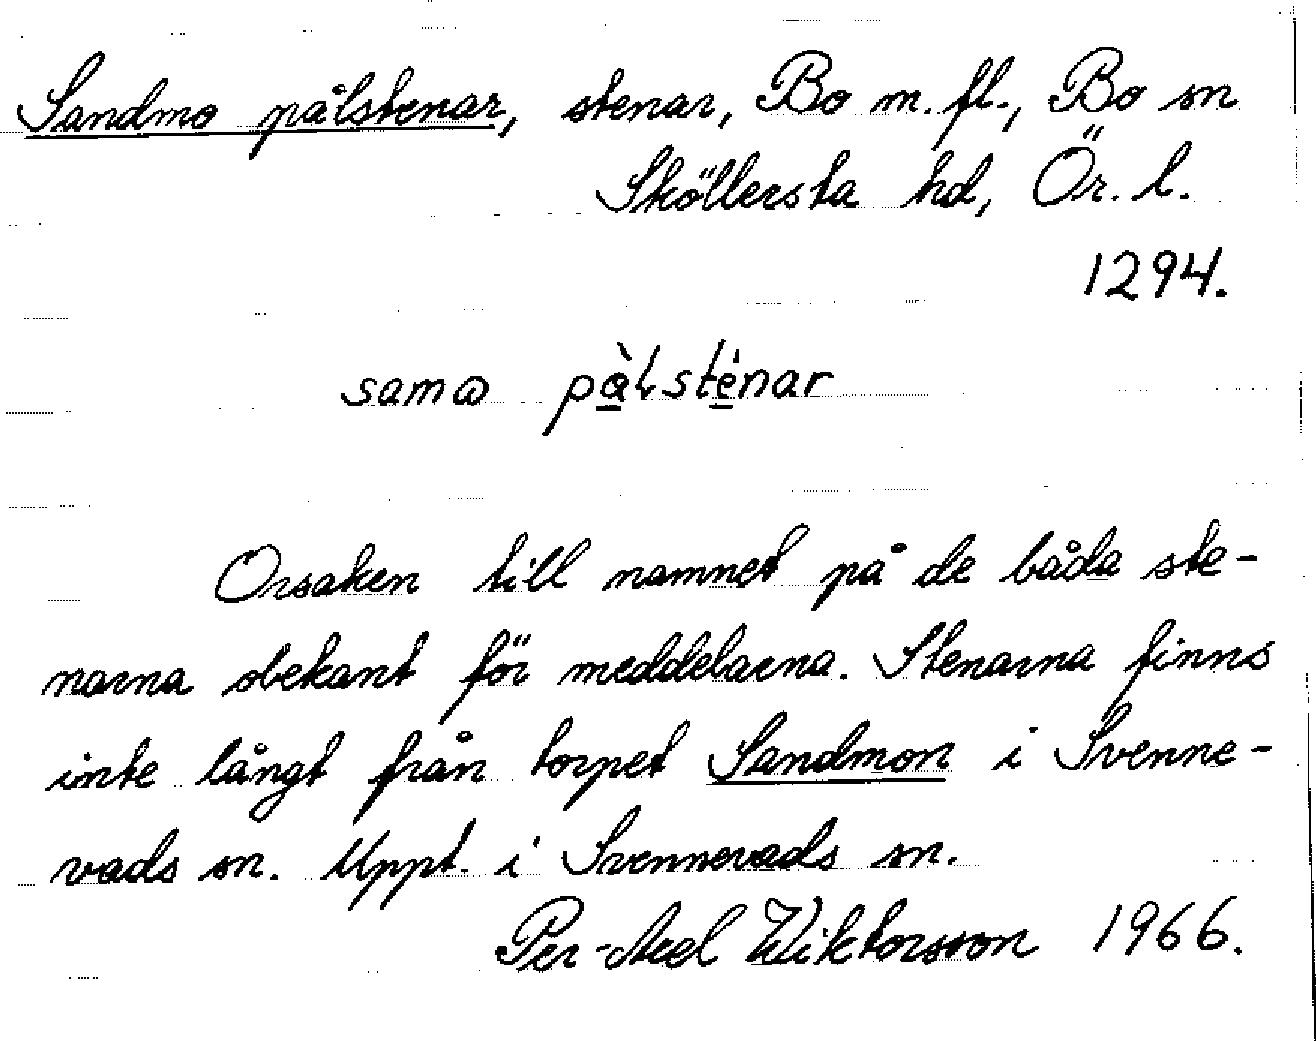 Sandmo pålstenar, stenar, Bo m. fl., Bo sn
Sköllersta hd, Ör. l.
1294.
samɷ pà̲lsté̲nar
Orsaken till namnet på de båda ste-
narna obekant för meddelarna. Stenarna finns
inte långt från torpet Sandmon i Svenne-
vads sn. Uppt. i Svennevads sn.
Per-Axel Wiktorsson 1966.